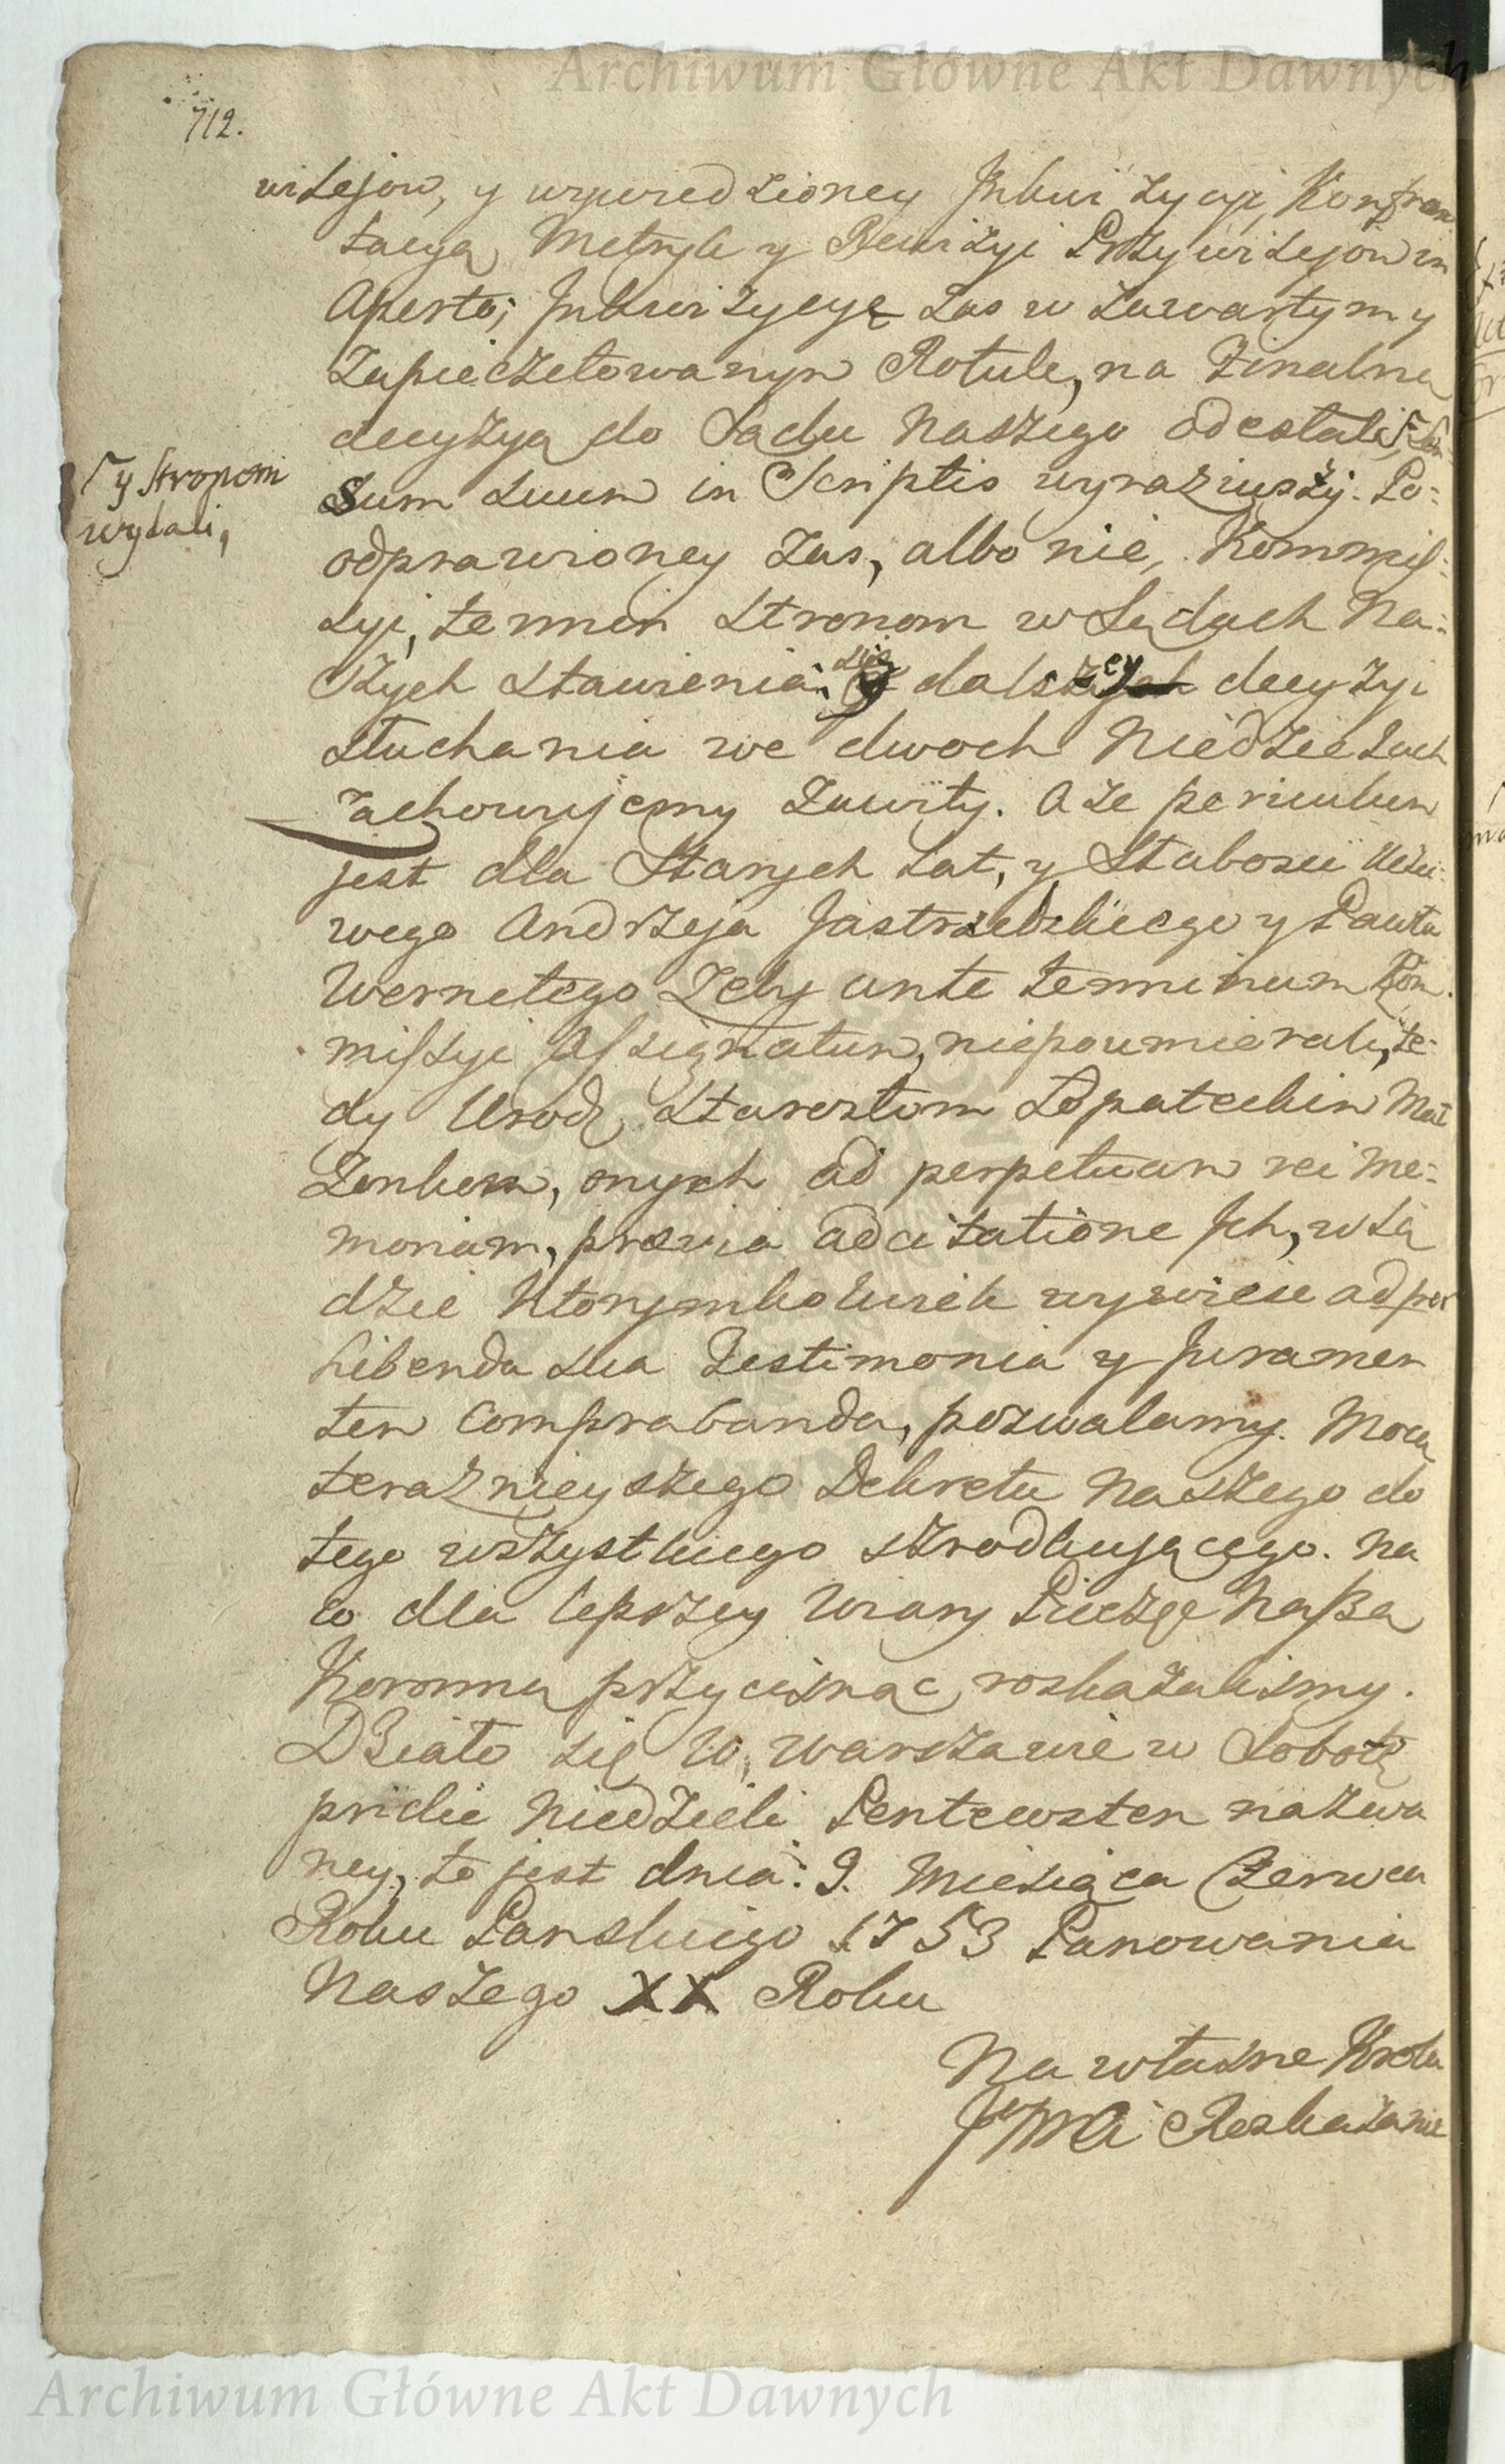 Archiwum Główne Akt Dawnych
712.
wilejow, y uzpriedzioney Inkwizycyi, Konfron
tacyą Metryk y Rewizyi Przywilejow in
Aperto; Inkwizycyę zas w zawartym y
zapieczetowanym Rotule, na Finalną
decyzyą do Sądu Naszego odesłali, Sen
sum suum in Scriptis wyraziwszy. Po=
odprawioney zas, albo nie, Kommis=
syi, termin stronom w Sądach Na=
szych stawienia się y dalszey decyzyi
słuchania we dwoch Niedzielach
zachowujemy zawity. A że periculum
jest dla Starych lat, y Słabosci Uczci=
wego Andrzeja Jastrzebskiego y Pawła
Wernelego żeby ante terminum Kom
missyi Assignatum, niepoumierali, te=
dy Urodz. Starostom Łopateckim Mał
żonkom, onych ad perpetuam rei me=
moriam, prævia adcitatione Ich, w Są
dzie Ktorymkolwiek wyzwiscie ad per
hibenda sua Testimonia y Juramen
tem Comprabanda, pozwalamy. Mocą
teraznieyszego Dekretu Naszego do
tego wszystkiego srzodkującego. Na
co dla lepszey Wiary Pieczęc Naszą
Koronną przycisnąc roskazalismy.
Działo się w Warszawie w Sobotę
pridie Niedzieli Pentecosten nazwa
ney, to jest dnia: 9. Miesiąca Czerwca
Roku Panskiego 1753 Panowania
Naszego XX Roku
Na własne Krola
JKMci Roskazanie
y stronom
wydali,
Archiwum Główne Akt Dawnych